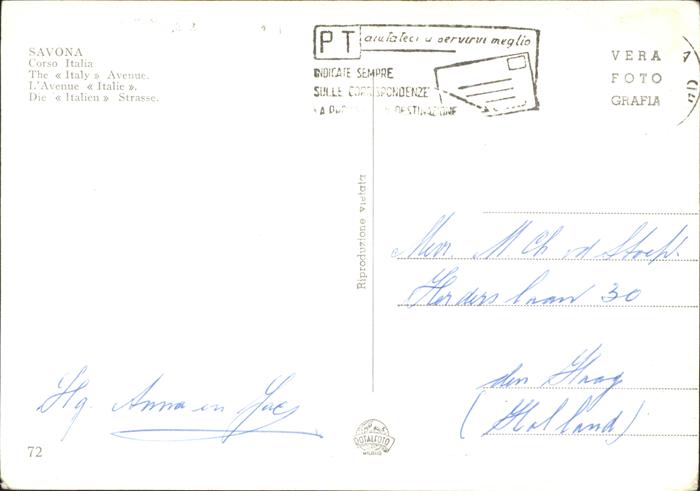 SAVONA
Corso Italia
The « Italy » Avenue.
L'Avenue « Italie ».
Die « Italien » Strasse.
PT aiutateci a servirvi meglio
INDICATE SEMPRE
SULLE CORRISPONDENZE
DESTINAZIONE
VERA
FOTO
GRAFIA
Riproduzione vietata
Mevr. M Ch vd Stoep.
Herderslaan 30
den Haag
(Holland)
Hg. Anna en
72
ROTALFOTO
MILANO